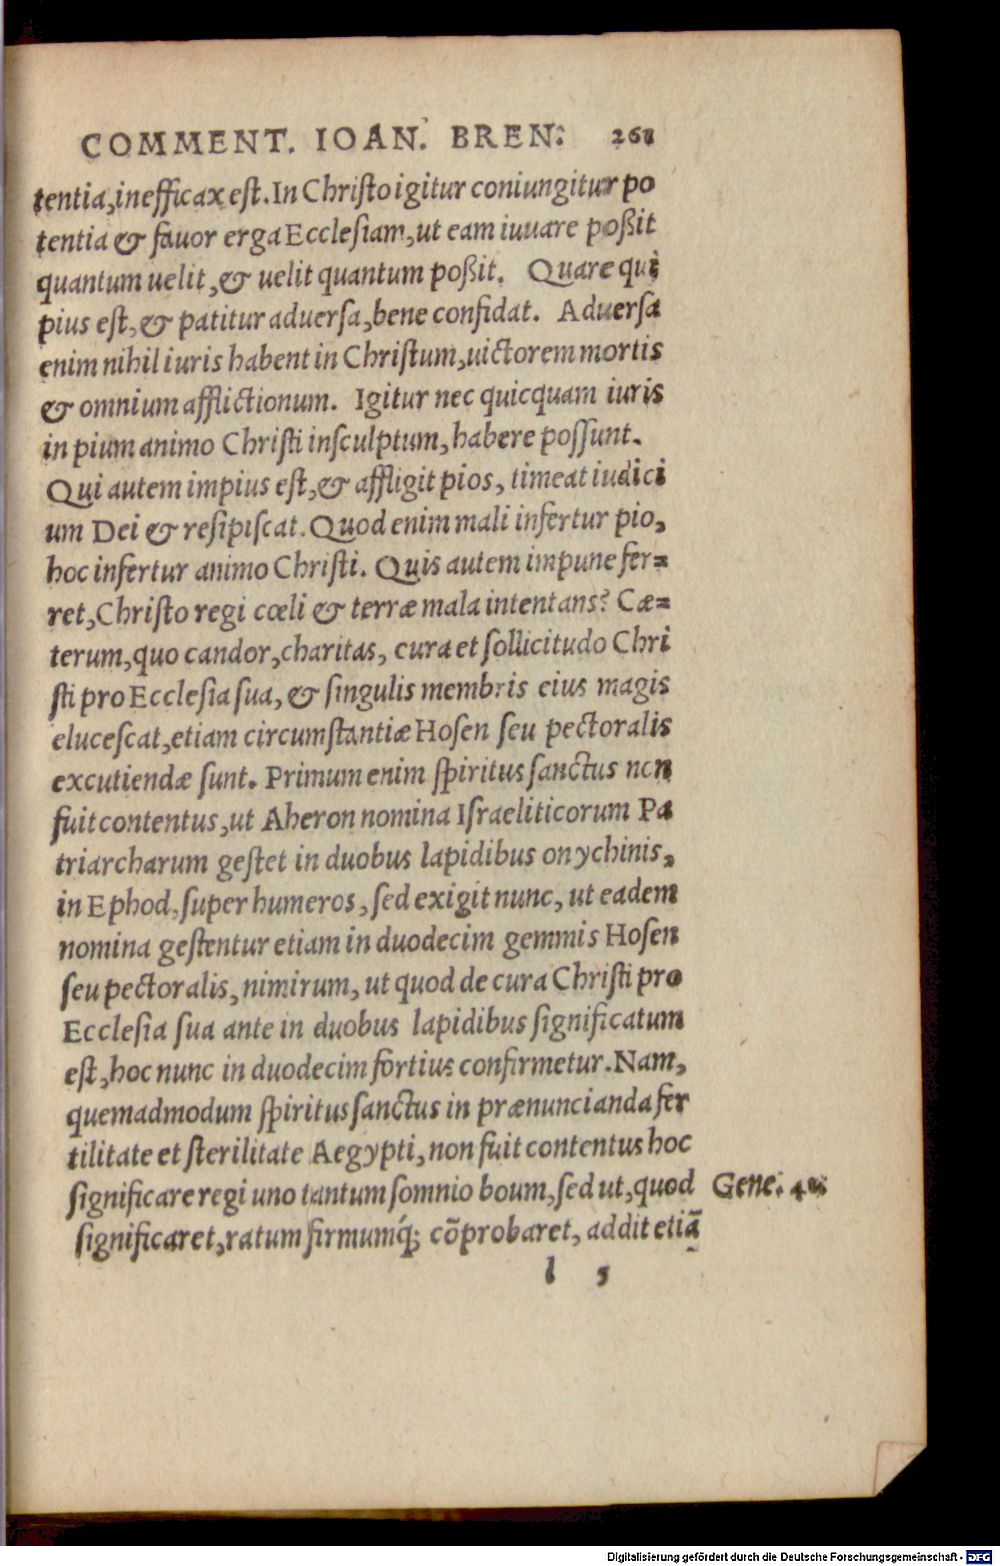 COMMENT. IOAN. BREN. 261
tentia, inefficax est. In Christo igitur coniungitur po
tentia & fauor erga Ecclesiam, ut eam iuuare poßit
quantum uelit, & uelit quantum poßit. Quare qui
pius est, & patitur aduersa, bene confidat. Aduersa
enim nihil iuris habent in Christum, uictorem mortis
& omnium afflictionum. Igitur nec quicquam iuris
in pium animo Christi insculptum, habere possunt.
Qui autem impius est, & affligit pios, timeat iudici
um Dei & resipiscat. Quod enim mali infertur pio,
hoc infertur animo Christi. Quis autem impune fer=
ret, Christo regi cœli & terræ mala intentans? Cæ=
terum, quo candor, charitas, cura et sollicitudo Chri
sti pro Ecclesia sua, & singulis membris eius magis
elucescat, etiam circumstantiæ Hosen seu pectoralis
excutiendæ sunt. Primum enim spiritus sanctus non
fuit contentus, ut Aheron nomina Israeliticorum Pa
triarcharum gestet in duobus lapidibus onychinis,
in Ephod, super humeros, sed exigit nunc, ut eadem
nomina gestentur etiam in duodecim gemmis Hosen
seu pectoralis, nimirum, ut quod de cura Christi pro
Ecclesia sua ante in duobus lapidibus significatum
est, hoc nunc in duodecim fortius confirmetur. Nam,
quemadmodum spiritus sanctus in prænuncianda fer
tilitate et sterilitate Aegypti, non fuit contentus hoc
significare regi uno tantum somnio boum, sed ut, quod
Gene. 41.
significaret, ratum firmumq́; cõprobaret, addit etiã
l 5
Digitalisierung gefördert durch die Deutsche Forschungsgemeinschaft - DFG